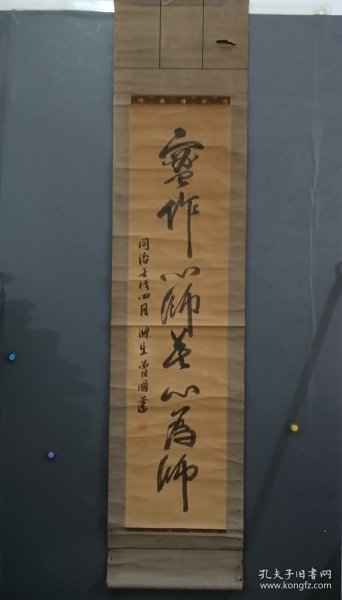 寧作心師莫心為師
同治壬戌四月 滌生曾國藩
孔夫子旧书网
www.kongfz.com